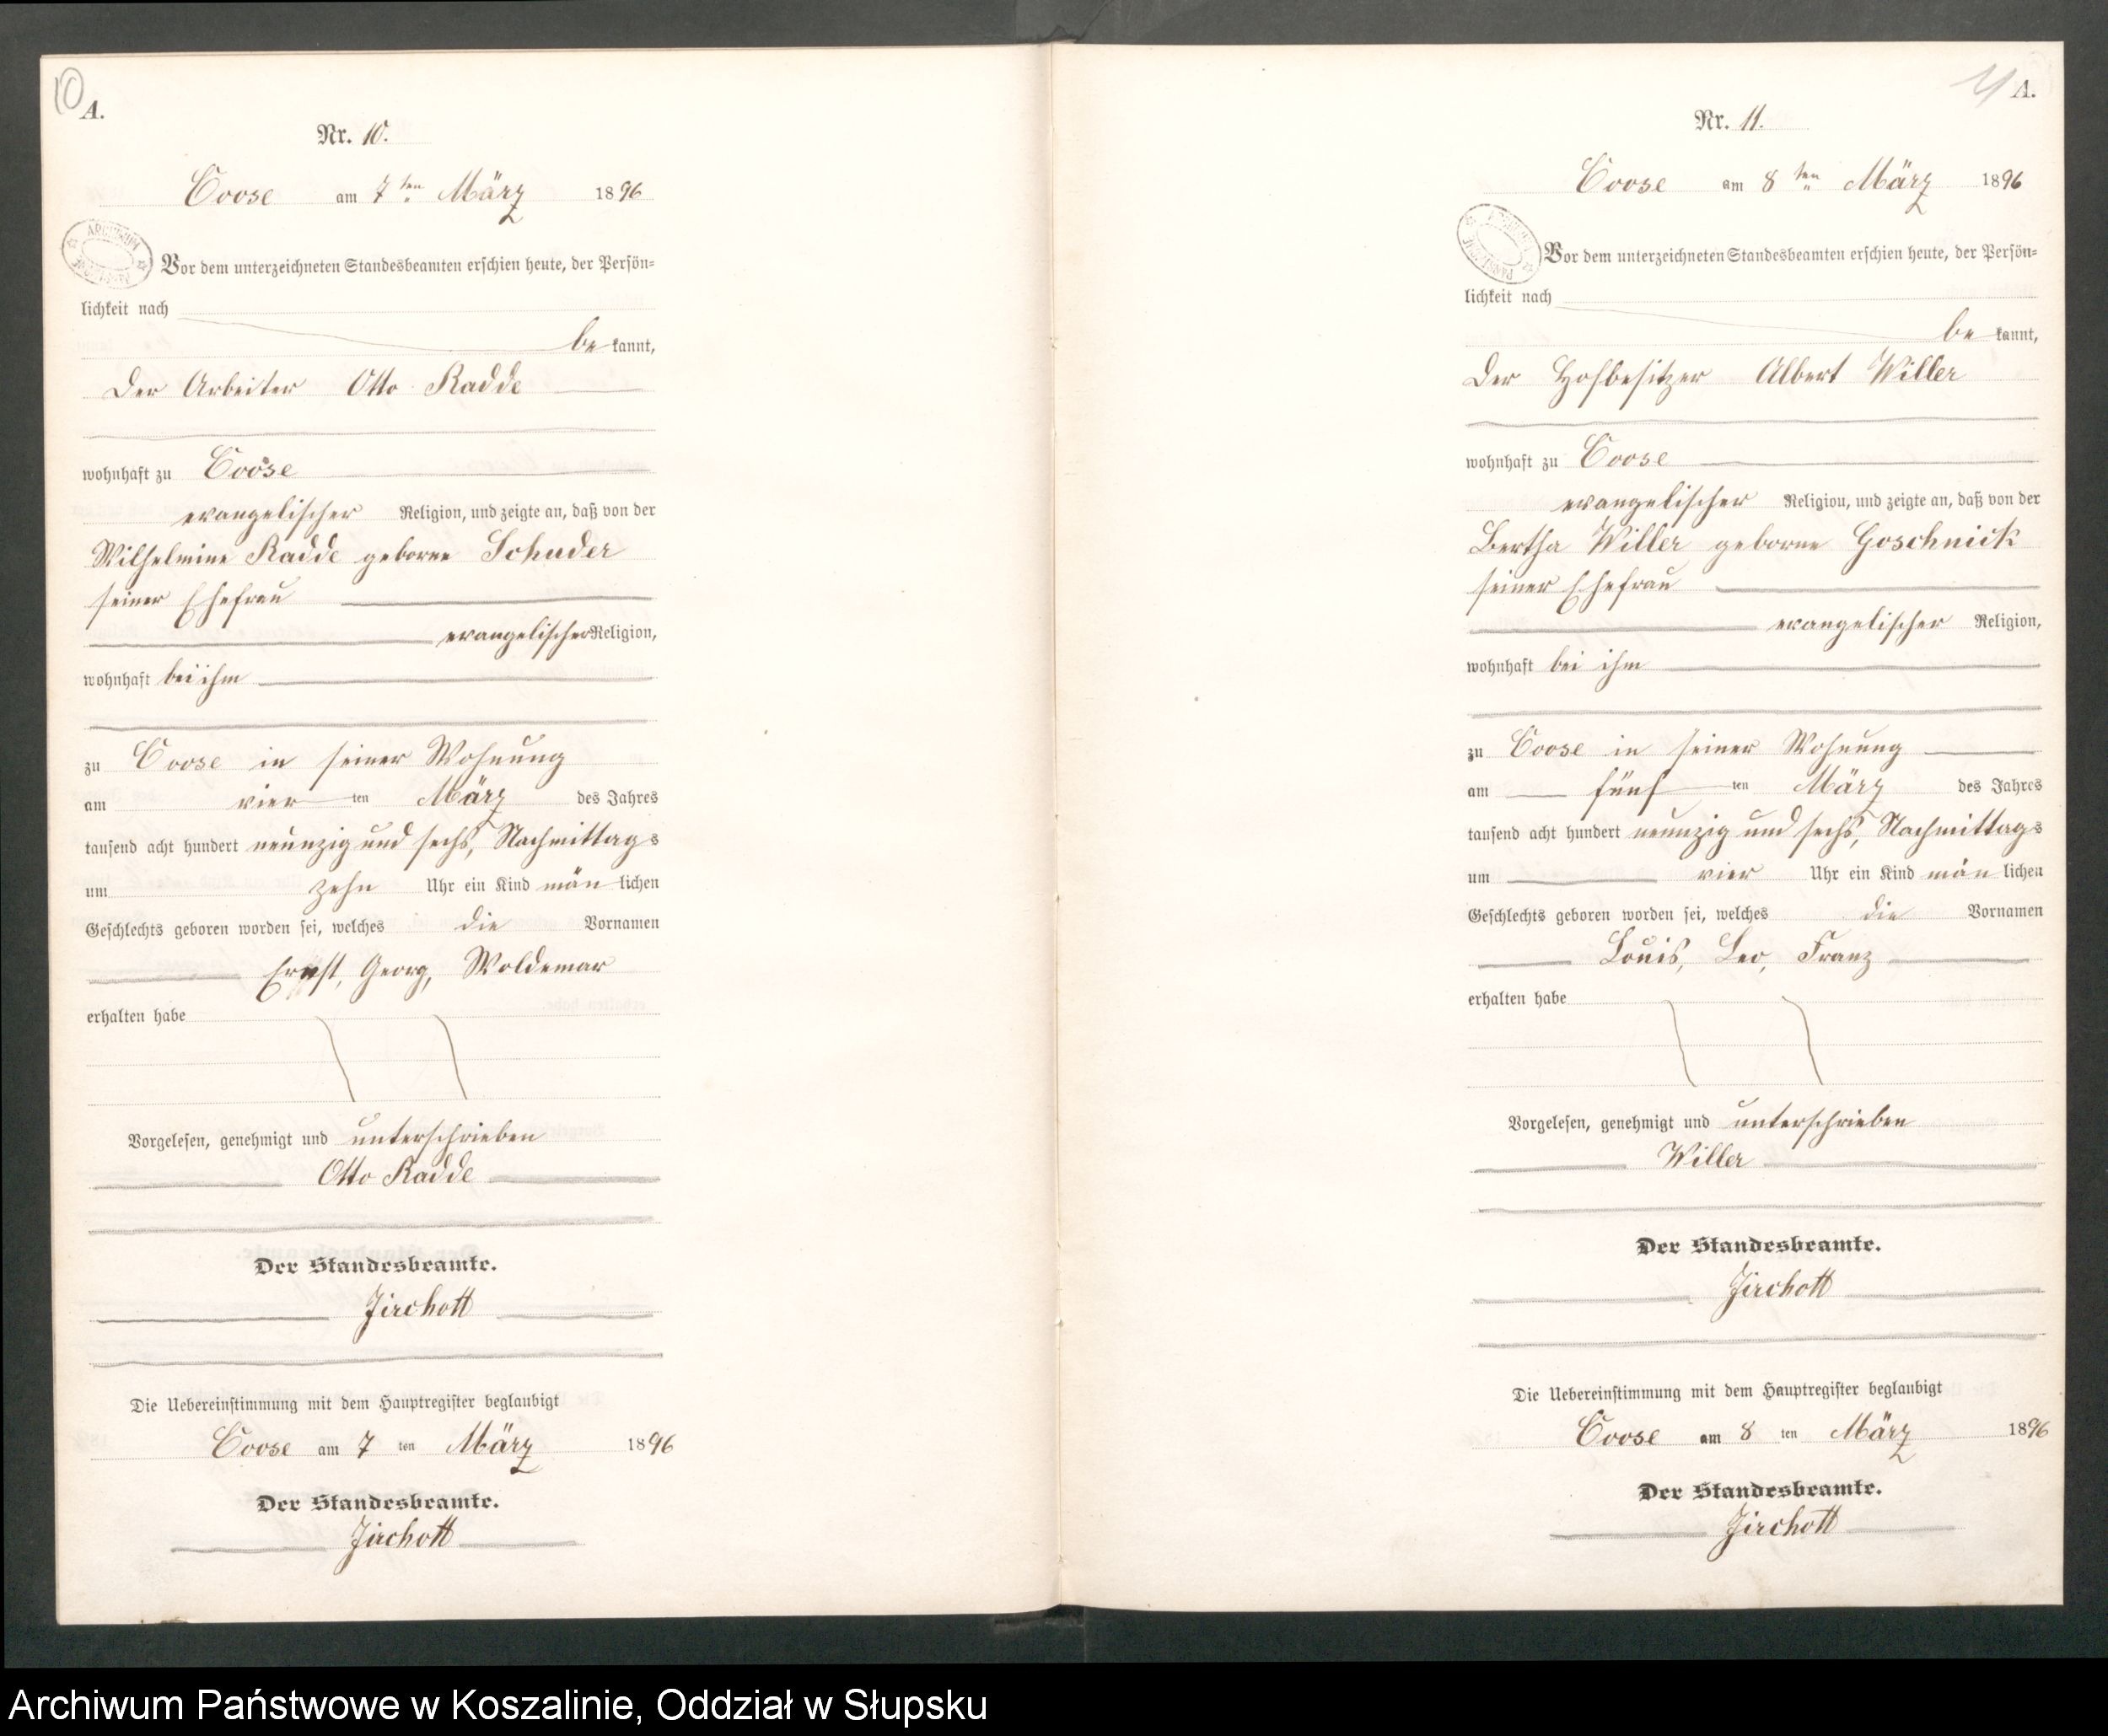 10
A.
Nr. 10.
Coose am 7ten März 1896
Vor dem unterzeichneten Standesbeamten erschien heute, der Persön=
lichkeit nach
be kannt,
der Arbeiter Otto Radde
wohnhaft zu Coose
evangelischer Religion, und zeigte an, daß von der
Wilhelmine Radde geborne Schuder
seiner Ehefrau
evangelischer Religion,
wohnhaft bei ihm
zu Coose in seiner Wohnung
am vier ten März des Jahres
tausend acht hundert neunzig und sechs, Nachmittags
um zehn Uhr ein Kind män lichen
Geschlechts geboren worden sei, welches die Vornamen
Ernst, Georg, Woldemar
erhalten habe
Vorgelesen, genehmigt und unterschrieben
Otto Radde
Der Standesbeamte.
Jirchott
Die Uebereinstimmung mit dem Hauptregister beglaubigt
Coose am 7 ten März 1896
Der Standesbeamte.
Jirchott
11
A.
Nr. 11.
Coose am 8ten März 1896
Vor dem unterzeichneten Standesbeamten erschien heute, der Persön=
lichkeit nach
be kannt,
der Hofbesitzer Albert Willer
wohnhaft zu Coose
evangelischer Religion, und zeigte an, daß von der
Bertha Willer geborne Goschnick
seiner Ehefrau
evangelischer Religion,
wohnhaft bei ihm
zu Coose in seiner Wohnung
am fünf ten März des Jahres
tausend acht hundert neunzig und sechs, Nachmittags
um vier Uhr ein Kind män lichen
Geschlechts geboren worden sei, welches die Vornamen
Louis, Leo, Franz
erhalten habe
Vorgelesen, genehmigt und unterschrieben
Willer
Der Standesbeamte.
Jirchott
Die Uebereinstimmung mit dem Hauptregister beglaubigt
Coose am 8 ten März 1896
Der Standesbeamte.
Jirchott
Archiwum Państwowe w Koszalinie, Oddział w Słupsku